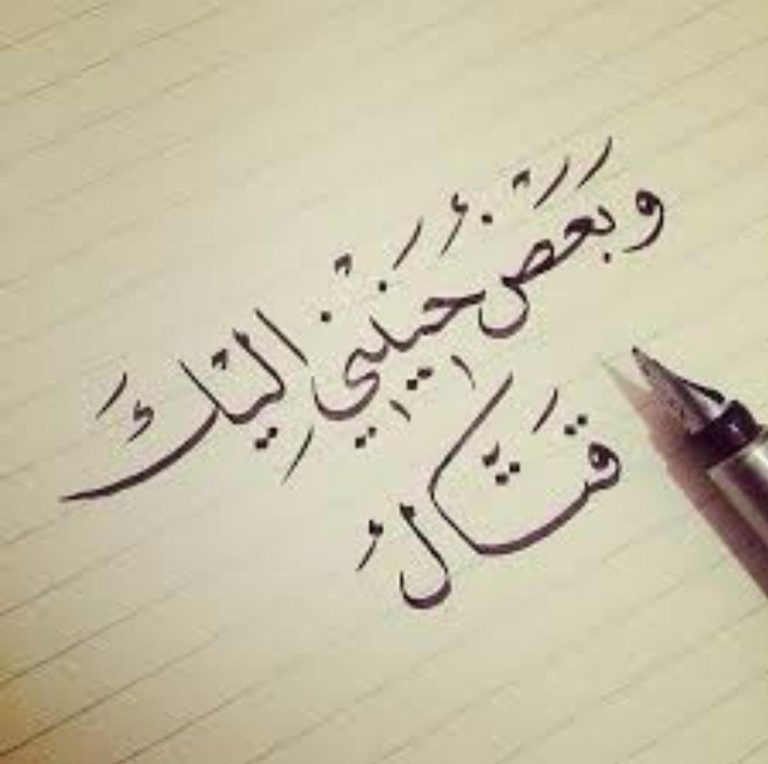 وَبَعْضُ حَنِيْنِي اِلَيْكَ
قَتَّالُ